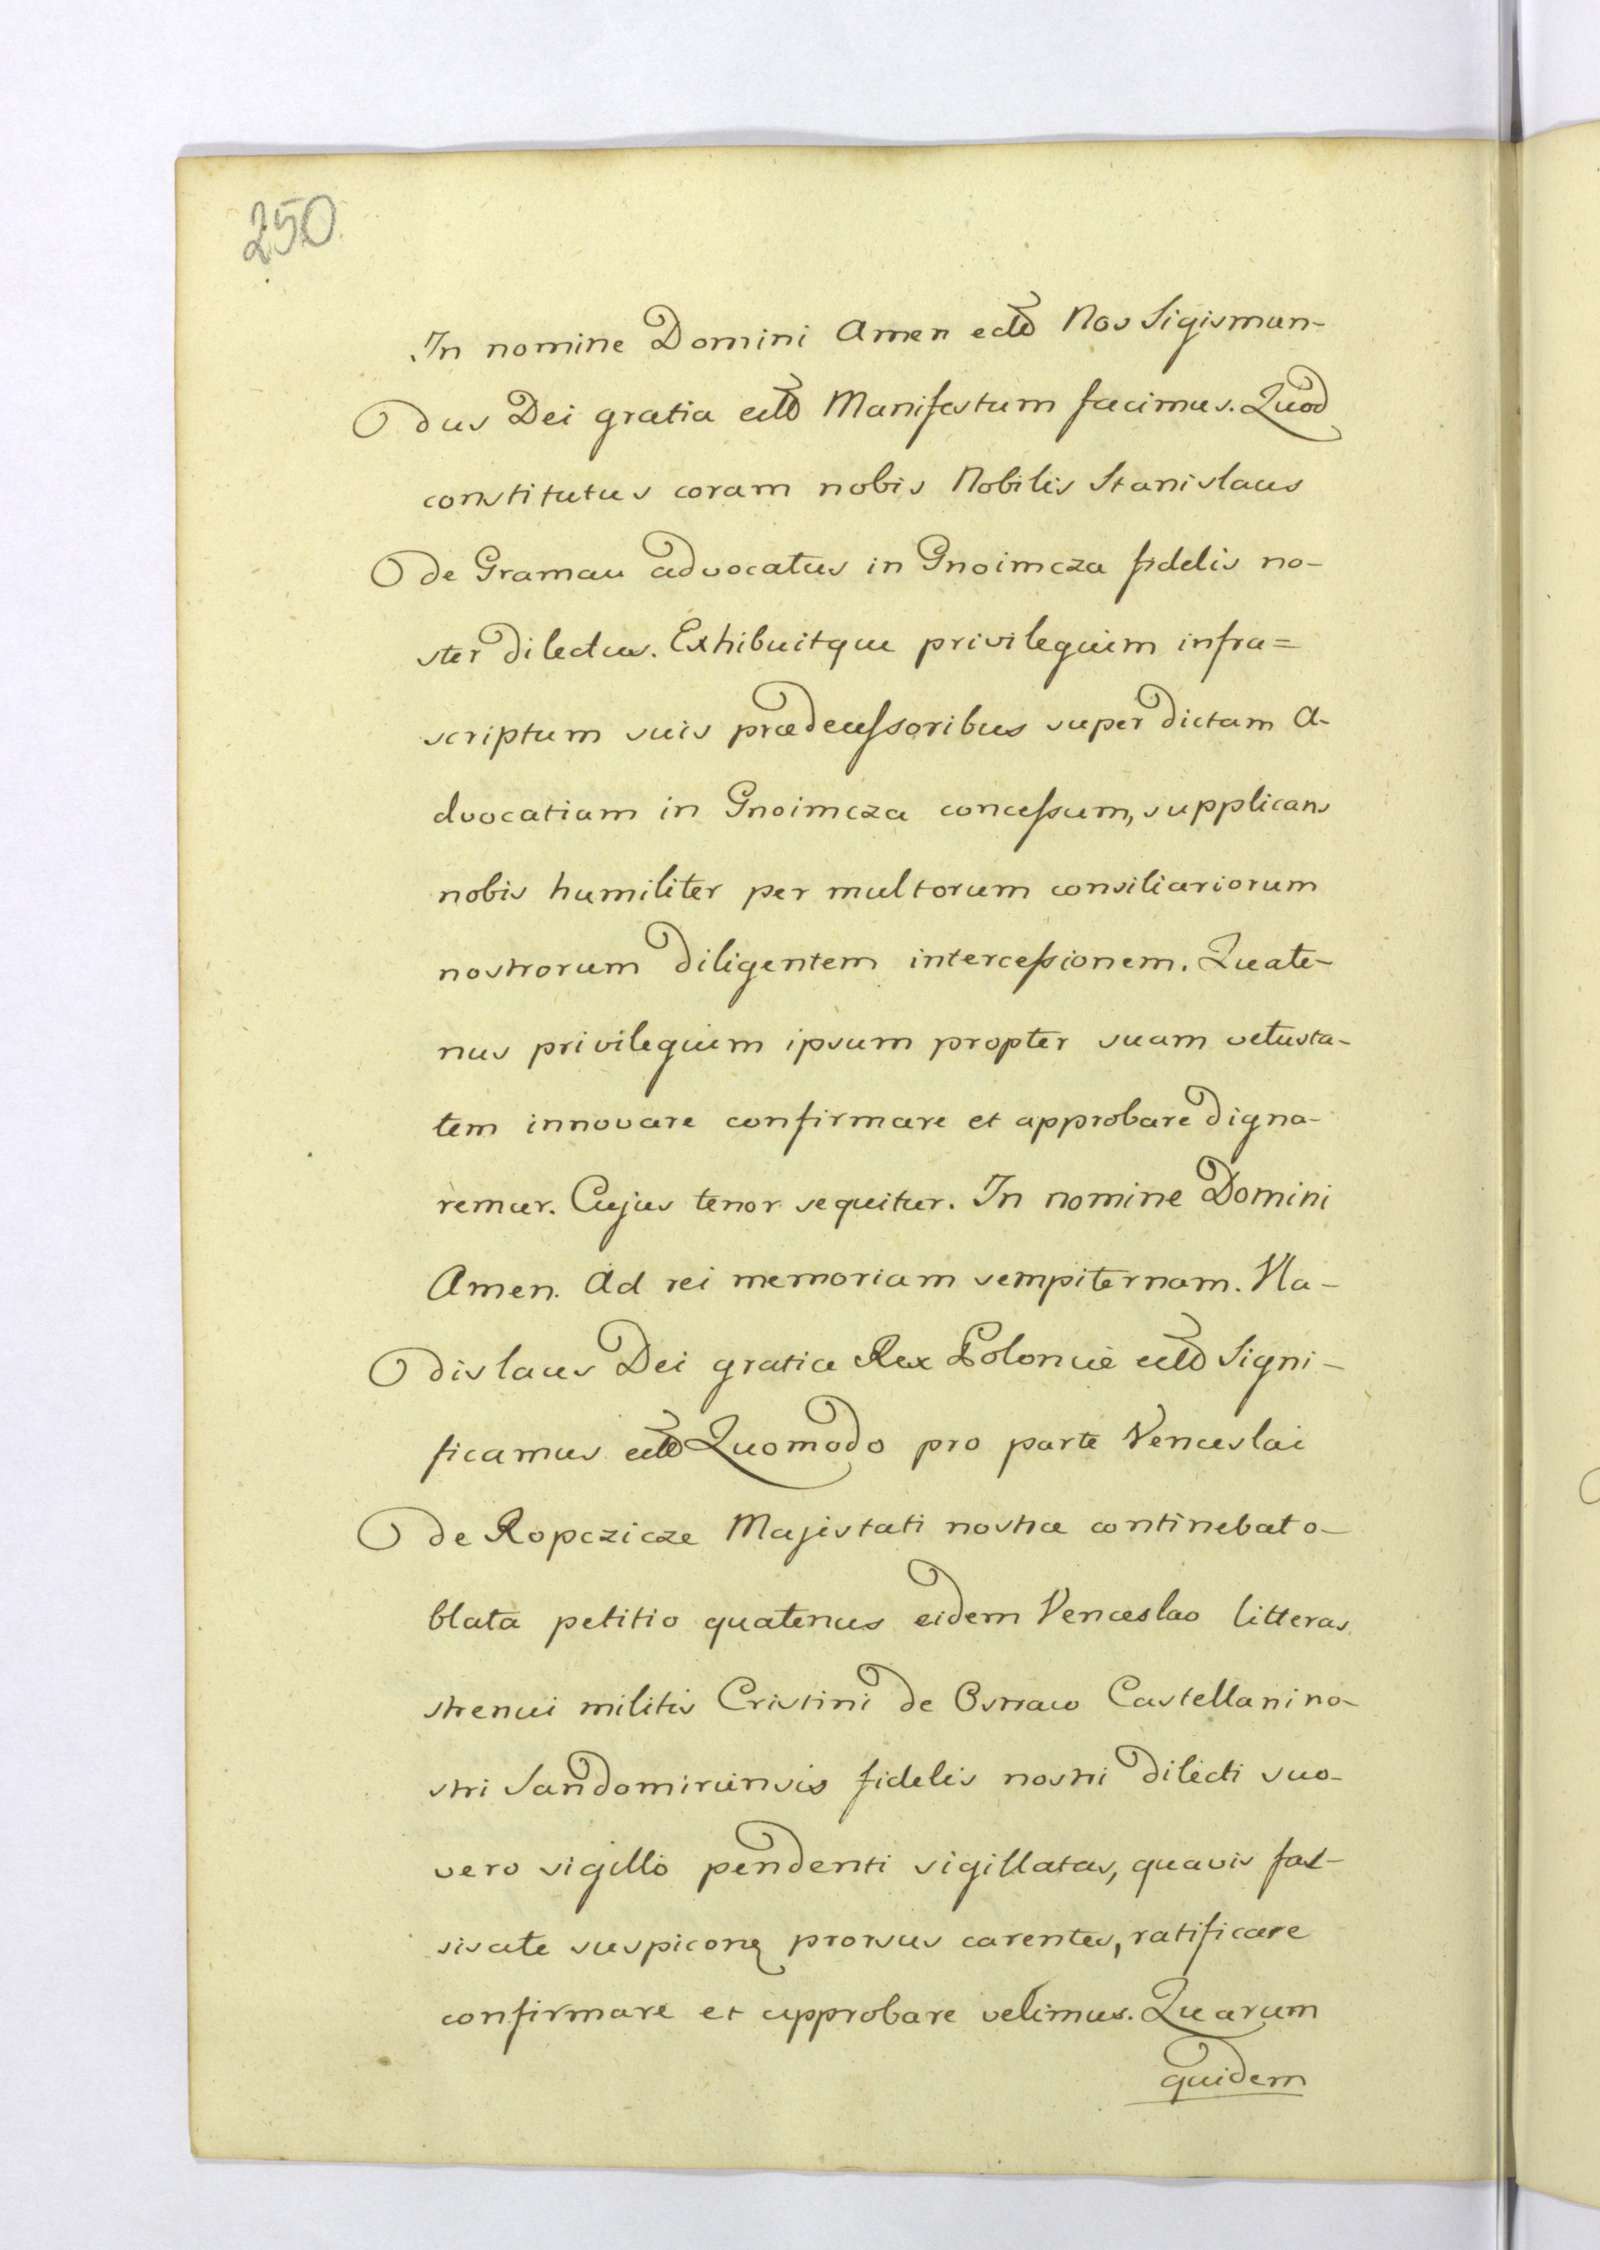 250.
In nomine Domini Amen ectt Nos Sigismun-
dus Dei gratia ectt Manifestum facimus. Quod
constitutus coram nobis Nobilis Stanislaus
de Gramau advocatus in Gnoimcza fidelis no-
ster dilectus. Exhibuitque privilegium infra=
scriptum suis prædecessoribus super dictam A-
dvocatiam in Gnoimcza concessum, supplicans
nobis humiliter per multorum consiliariorum
nostrorum diligentem intercessionem. Quate-
nus privilegium ipsum propter suam vetusta-
tem innovare confirmare et approbare digna-
remur. Cujus tenor sequitur. In nomine Domini
Amen. Ad rei memoriam sempiternam. Vla-
dislaus Dei gratia Rex Poloniæ ectt Signi-
ficamus ectt Quomodo pro parte Venceslai
de Ropczicze Majestati nostræ continebat o-
blata petitio quatenus eidem Venceslao litteras
strenui militis Cristini de Ostrow Castellani no-
stri Sandomiriensis fidelis nostri dilecti suo-
vero sigillo pendenti sigillatas, quavis fal-
sisate suspicione prorsus carentes, ratificare
confirmare et approbare velimus. Quarum
quidem